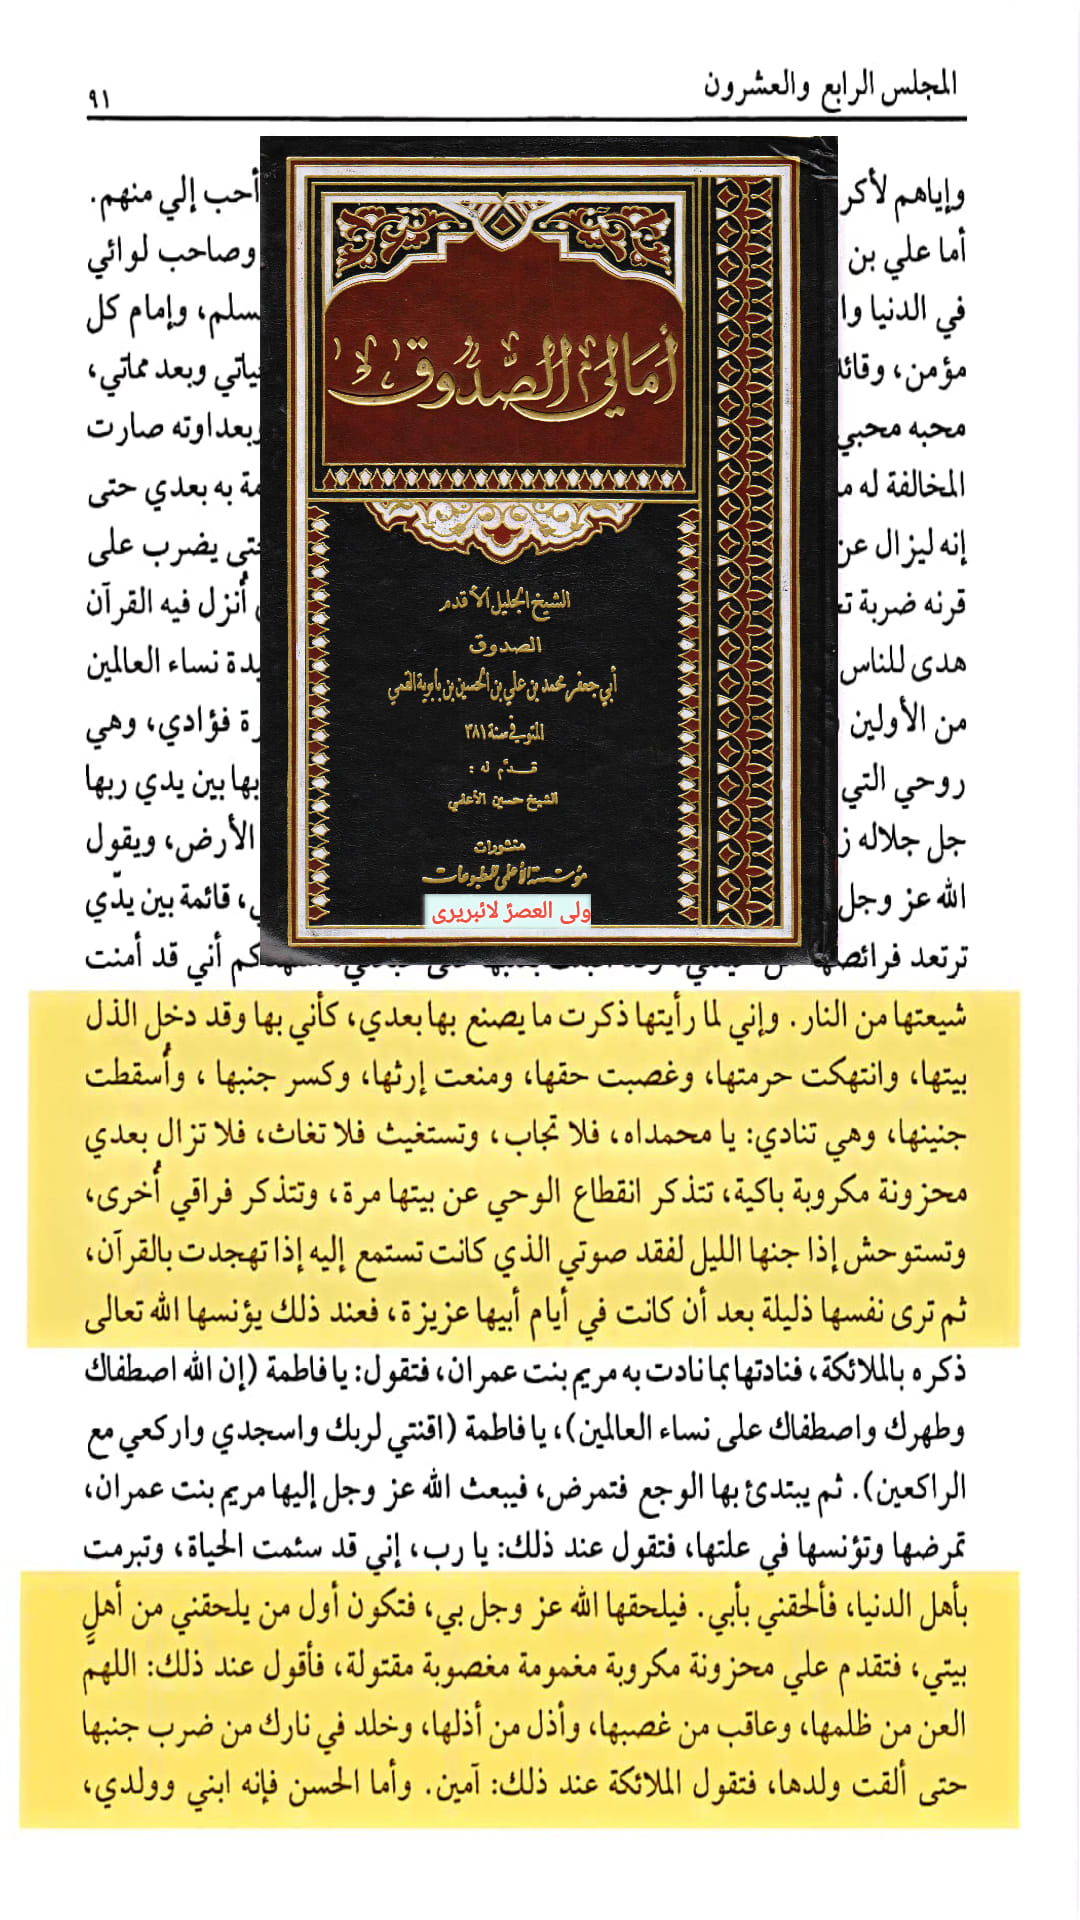 المجلس الرابع والعشرون
٩١
وإياهم لأكر
أحب إلي منهم.
أما علي بن
وصاحب لوائي
في الدنيا وا
سلم، وإمام كل
مؤمن، وقائد
ياتي وبعد مماتي،
محبه محبي
بعداوته صارت
المخالفة له م
مة به بعدي حتى
إنه ليزال عن
حتى يضرب على
قرنه ضربة ت
أُنزل فيه القرآن
هدى للناس
يدة نساء العالمين
من الأولين
رة فؤادي، وهي
روحي التي
بها بين يدي ربها
جل جلاله ز
الأرض، ويقول
الله عز وجل
، قائمة بين يدّي
ترتعد فرائصها
كم أني قد أمنت
أمالي الصّدوق
الشيخ الجليل الأقدم
الصدوق
أبي جعفر محمد بن علي بن الحسين بن بابوية القمي
المتوفي سنة ٣٨١
قدّم له :
الشيخ حسين الأعلمي
منشورات
مؤسسة الأعلمي للمطبوعات
ولی العصرؑ لائبریری
شيعتها من النار. وإني لما رأيتها ذكرت ما يصنع بها بعدي، كأني بها وقد دخل الذل
بيتها، وانتهكت حرمتها، وغصبت حقها، ومنعت إرثها، وكسر جنبها ، وأُسقطت
جنينها، وهي تنادي: يا محمداه، فلا تجاب، وتستغيث فلا تغاث، فلا تزال بعدي
محزونة مكروبة باكية، تتذكر انقطاع الوحي عن بيتها مرة، وتتذكر فراقي أُخرى،
وتستوحش إذا جنها الليل لفقد صوتي الذي كانت تستمع إليه إذا تهجدت بالقرآن،
ثم ترى نفسها ذليلة بعد أن كانت في أيام أبيها عزيزة، فعند ذلك يؤنسها الله تعالى
ذكره بالملائكة، فنادتها بما نادت به مريم بنت عمران، فتقول: يا فاطمة (إن الله اصطفاك
وطهرك واصطفاك على نساء العالمين)، يا فاطمة (اقنتي لربك واسجدي واركعي مع
الراكعين). ثم يبتدئ بها الوجع فتمرض، فيبعث الله عز وجل إليها مريم بنت عمران،
تمرضها وتؤنسها في علتها، فتقول عند ذلك: يا رب، إني قد سئمت الحياة، وتبرمت
بأهل الدنيا، فألحقني بأبي. فيلحقها الله عز وجل بي، فتكون أول من يلحقني من أهلٍ
بيتي، فتقدم علي محزونة مكروبة مغمومة مغصوبة مقتولة، فأقول عند ذلك: اللهم
العن من ظلمها، وعاقب من غصبها، وأذل من أذلها، وخلد في نارك من ضرب جنبها
حتى ألقت ولدها، فتقول الملائكة عند ذلك: آمين. وأما الحسن فإنه ابني وولدي،